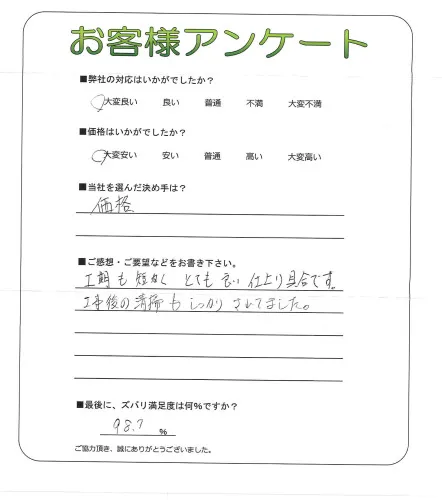 お客様アンケート
■弊社の対応はいかがでしたか？
大変良い 良い 普通 不満 大変不満
■価格はいかがでしたか？
大変安い 安い 普通 高い 大変高い
■当社を選んだ決め手は？
価格
■ご感想・ご要望などをお書き下さい。
工期も短かく とても良い仕上り具合です。
工事後の清掃もしっかりされてました。
■最後に、ズバリ満足度は何%ですか？
98.7 %
ご協力頂き、誠にありがとうございました。